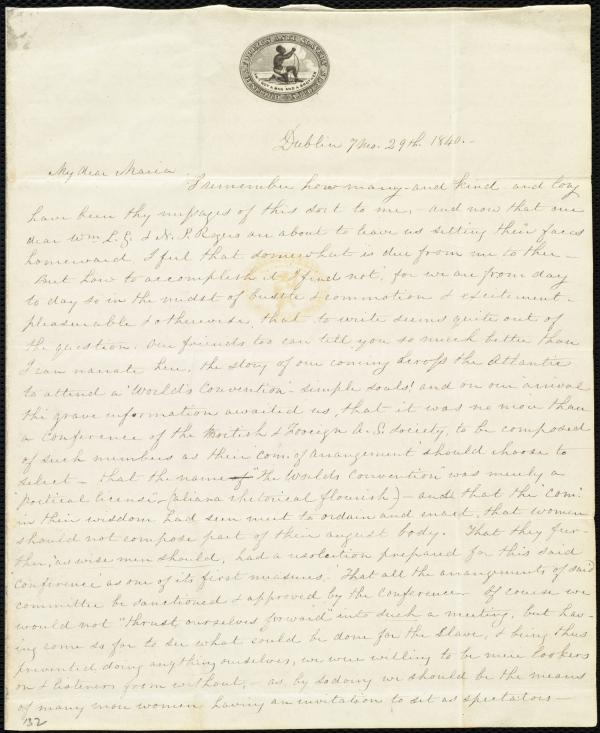 Dublin 7 Mo. 29th. 1840.-
My dear Maria
I remember how many and kind and long
have been thy messages of this sort to me,- and now that our
dear Wm. L. G. & N. P. Rogers are about to leave us setting their faces
homeward, I feel that somewhat is due from me to thee-
But how to accomplish it I find not, for we are from day
to day so in the midst of bustle & commotion & excitement-
pleasurable & otherwise, that to write seems quite out of
the question. Our friends too can tell you so much better than
I can narrate here, the story of our coming across the Atlantic
to attend a "World's Convention"- simple souls! and on our arrival
the grave information awaited us, that it was no more than
a Conference of the British & Foreign A. S. Society, to be composed
of such members as their Com. of arrangement should choose to
select- that the name of "The World's Convention" was merely a
"poetical license," (alias a rhetorical flourish)- and that the Com.
in their wisdom had seen meet to ordain and enact, that women
should not compose part of their august body. That they fur-
ther, "as wise men should, had a resolution prepared for this said
"Conference" as one of its first measures. That all the arrangements of said
committee be sanctioned & approved by the Conference- Of course we
would not "thrust ourselves forward" into such a meeting, but hav-
ing come so far to see what could be done for the Slave, & being thus
prevented doing anything ourselves, we were willing to be mere lookers
on & listeners from without,- as by so doing we should be the means
of many more women having an invitation to set as spectators-
132
AM I NOT A MAN AND A BROTHER